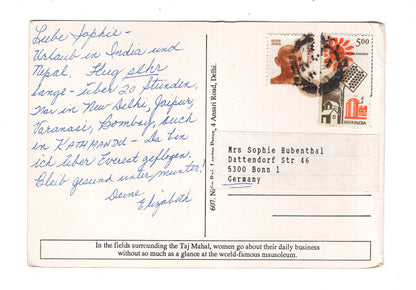 Liebe Sophie -
Urlaub in India und
Nepal. Flug sehr
lange - über 20 Stunden.
War in New Delhi, Jaipur,
Varanasi, Bombay, auch
in KATHMANDU - Da bin
ich über Everest geflogen.
Bleib gesund unter munter!
Deine
Elizabeth
5.00
ENERGY
INDIA
4 Ansari Road, Delhi.
607.
Mrs Sophie Hubenthal
Dattendorf Str 46
5300 Bonn 1
Germany
In the fields surrounding the Taj Mahal, women go about their daily business
without so much as a glance at the world-famous mausoleum.